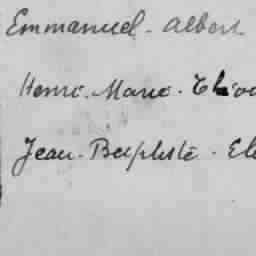 Emmanuel - Albert
Henri - Marie -
Jean - Baptiste -